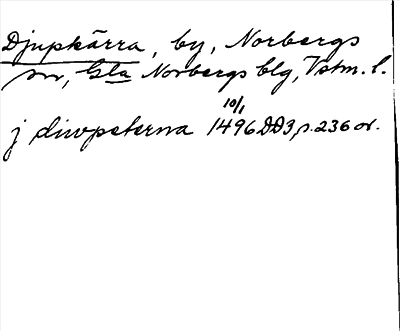 Djupkärra, by, Norbergs
sn, Gla Norbergs blg, Vstm. l.
10/1
j diwpekerna 1496 DD3, s. 236 or.